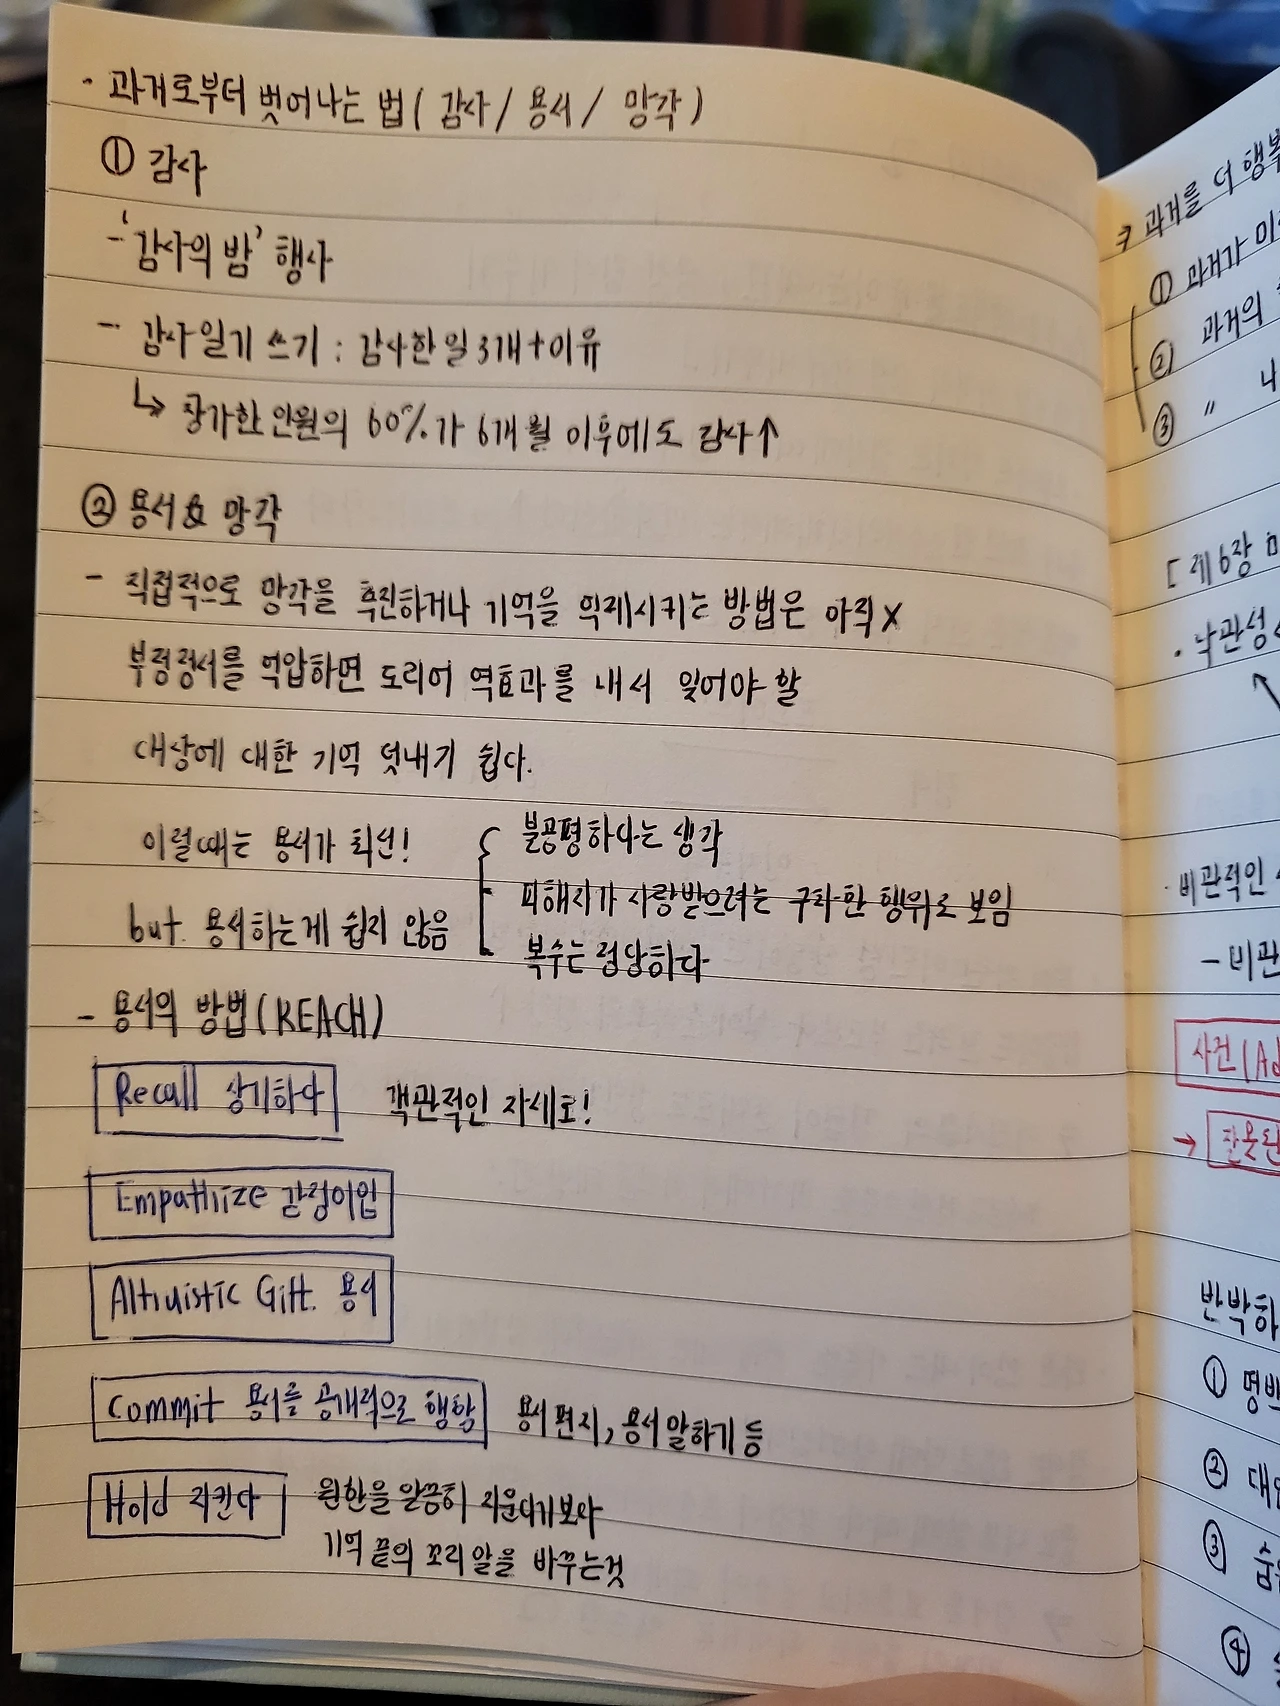 · 과거로부터 벗어나는 법 ( 감사 / 용서 / 망각 )
① 감사
- '감사의 밤' 행사
- 감사일기 쓰기 : 감사한 일 3개 + 이유
↳ 참가한 인원의 60%가 6개월 이후에도 감사↑
② 용서 & 망각
- 직접적으로 망각을 촉진하거나 기억을 억제시키는 방법은 아직 X
부정정서를 억압하면 도리어 역효과를 내서 잊어야 할
대상에 대한 기억 덧내기 쉽다.
이럴때는 용서가 최선!
but. 용서하는게 쉽지 않음
불공평하다는 생각
피해자가 사랑받으려는 구차한 행위로 보임
복수는 정당하다
- 용서의 방법 (REACH)
Recall 상기하다 객관적인 자세로!
Empathize 감정이입
Altruistic Gift. 용서
Commit 용서를 공개적으로 행함 용서편지, 용서 말하기 등
Hold 지킨다 원한을 말끔히 지운다기보다
기억 끝의 꼬리말을 바꾸는것
과거를 더 행복
① 과거가 미
② 과거의
③ 〃 나
[ 제6장
· 낙관성
· 비관적인
- 비관
사건 (Ad
→ 잘못된
반박하
① 명백
② 대안
③ 숨
④